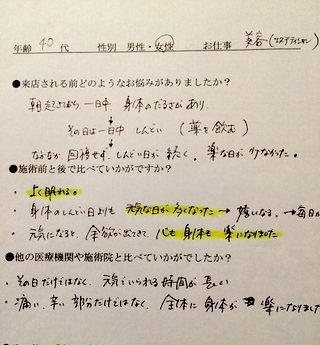 年齢 40 代 性別 男性・女性 お仕事 美容（エステティシャン）
●来店される前どのようなお悩みがありましたか？
朝起きてから、一日中、身体のだるさがあり、
↓
その日は一日中 しんどい （薬を飲む）
↓
なかなか回復せず、しんどい日が続く。楽な日が少なかった。
●施術前と後で比べていかがですか？
・よく眠れる。
・身体のしんどい日よりも 元気な日が多くなった → 嬉しくなる。→ 毎日が
・元気になると、余欲が出てきて、心も身体も 楽になりました
●他の医療機関や施術院と比べていかがでしたか？
・その日だけではなく、元気でいられる時間が長い
・痛い、辛い部分だけではなく、全体に身体が 楽になりました